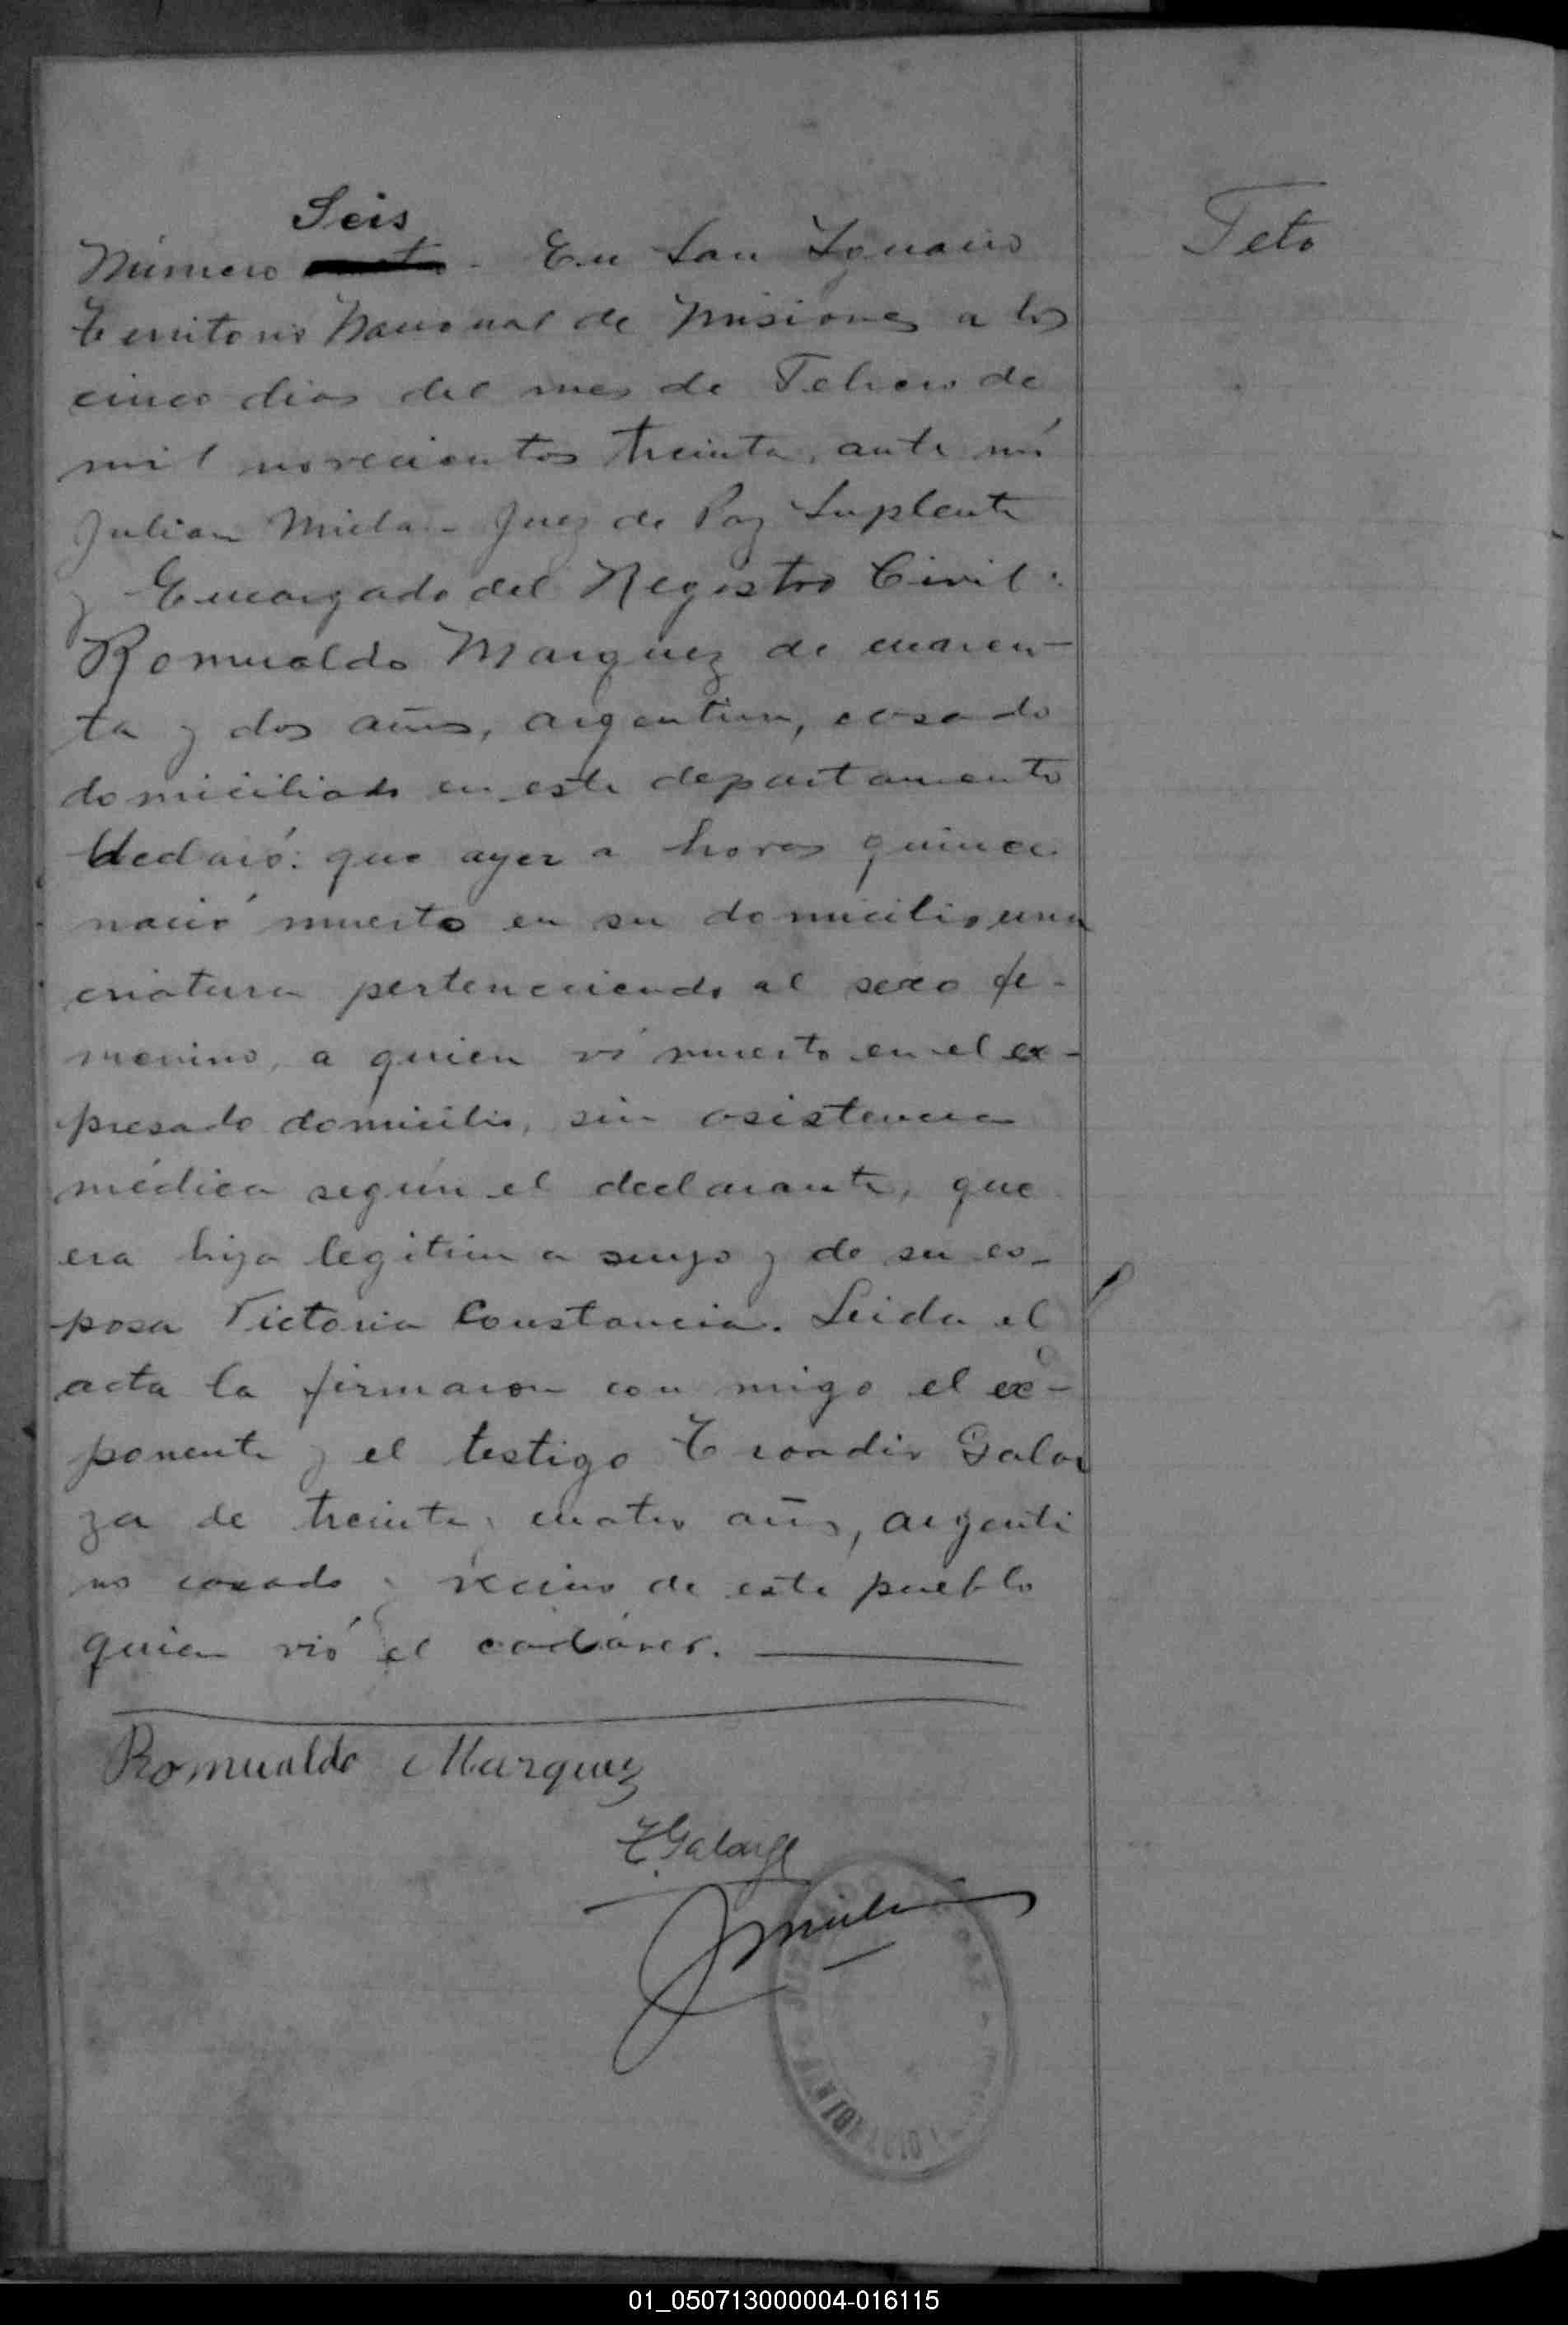 Seis
Número. En San Ignacio
Territorio Nacional de Misiones a los
cinco dias del mes de Febrero de
mil novecientos treinta, ante mi
Julian Miela - Juez de Paz Suplente
y Encargado del Registro Civil:
Romualdo Marquez de cuaren-
ta y dos años, argentino, casado
domiciliado en este departamento
declaró: que ayer a horas quince
nació muerto en su domicilio una
criatura perteneciendo al sexo fe-
menino, a quien ví muerto en el ex-
presado domicilio, sin asistencia
médica según el declarante, que
era hija legitima suya y de su es-
posa Victoria Constancia. Leida el
acta la firmaron con migo el ex-
ponente y el testigo Troadio Galar
za de treinta y cuatro años, argenti
no casado y vecino de este pueblo
quien vió el cadáver.
Romualdo Marquez
T Galarza
J Miela
Feto
01_050713000004-016115